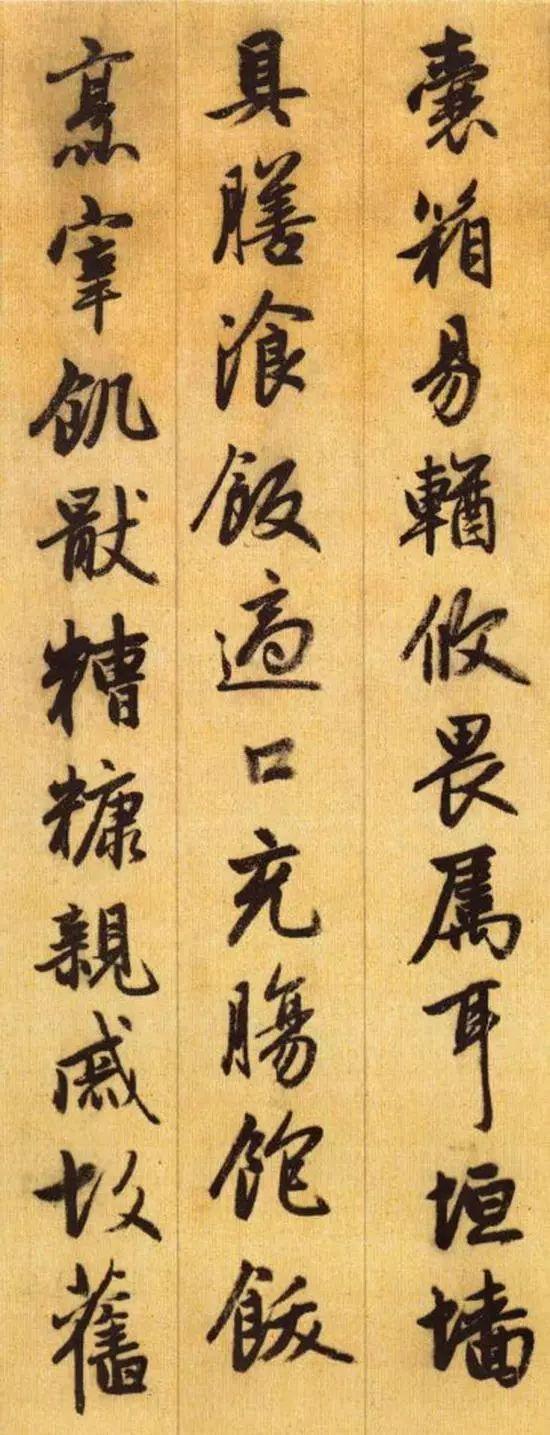 囊箱易輶攸畏属耳垣墙
具膳飡飯適口充腸飽飫
烹宰飢猒糟糠親戚故舊